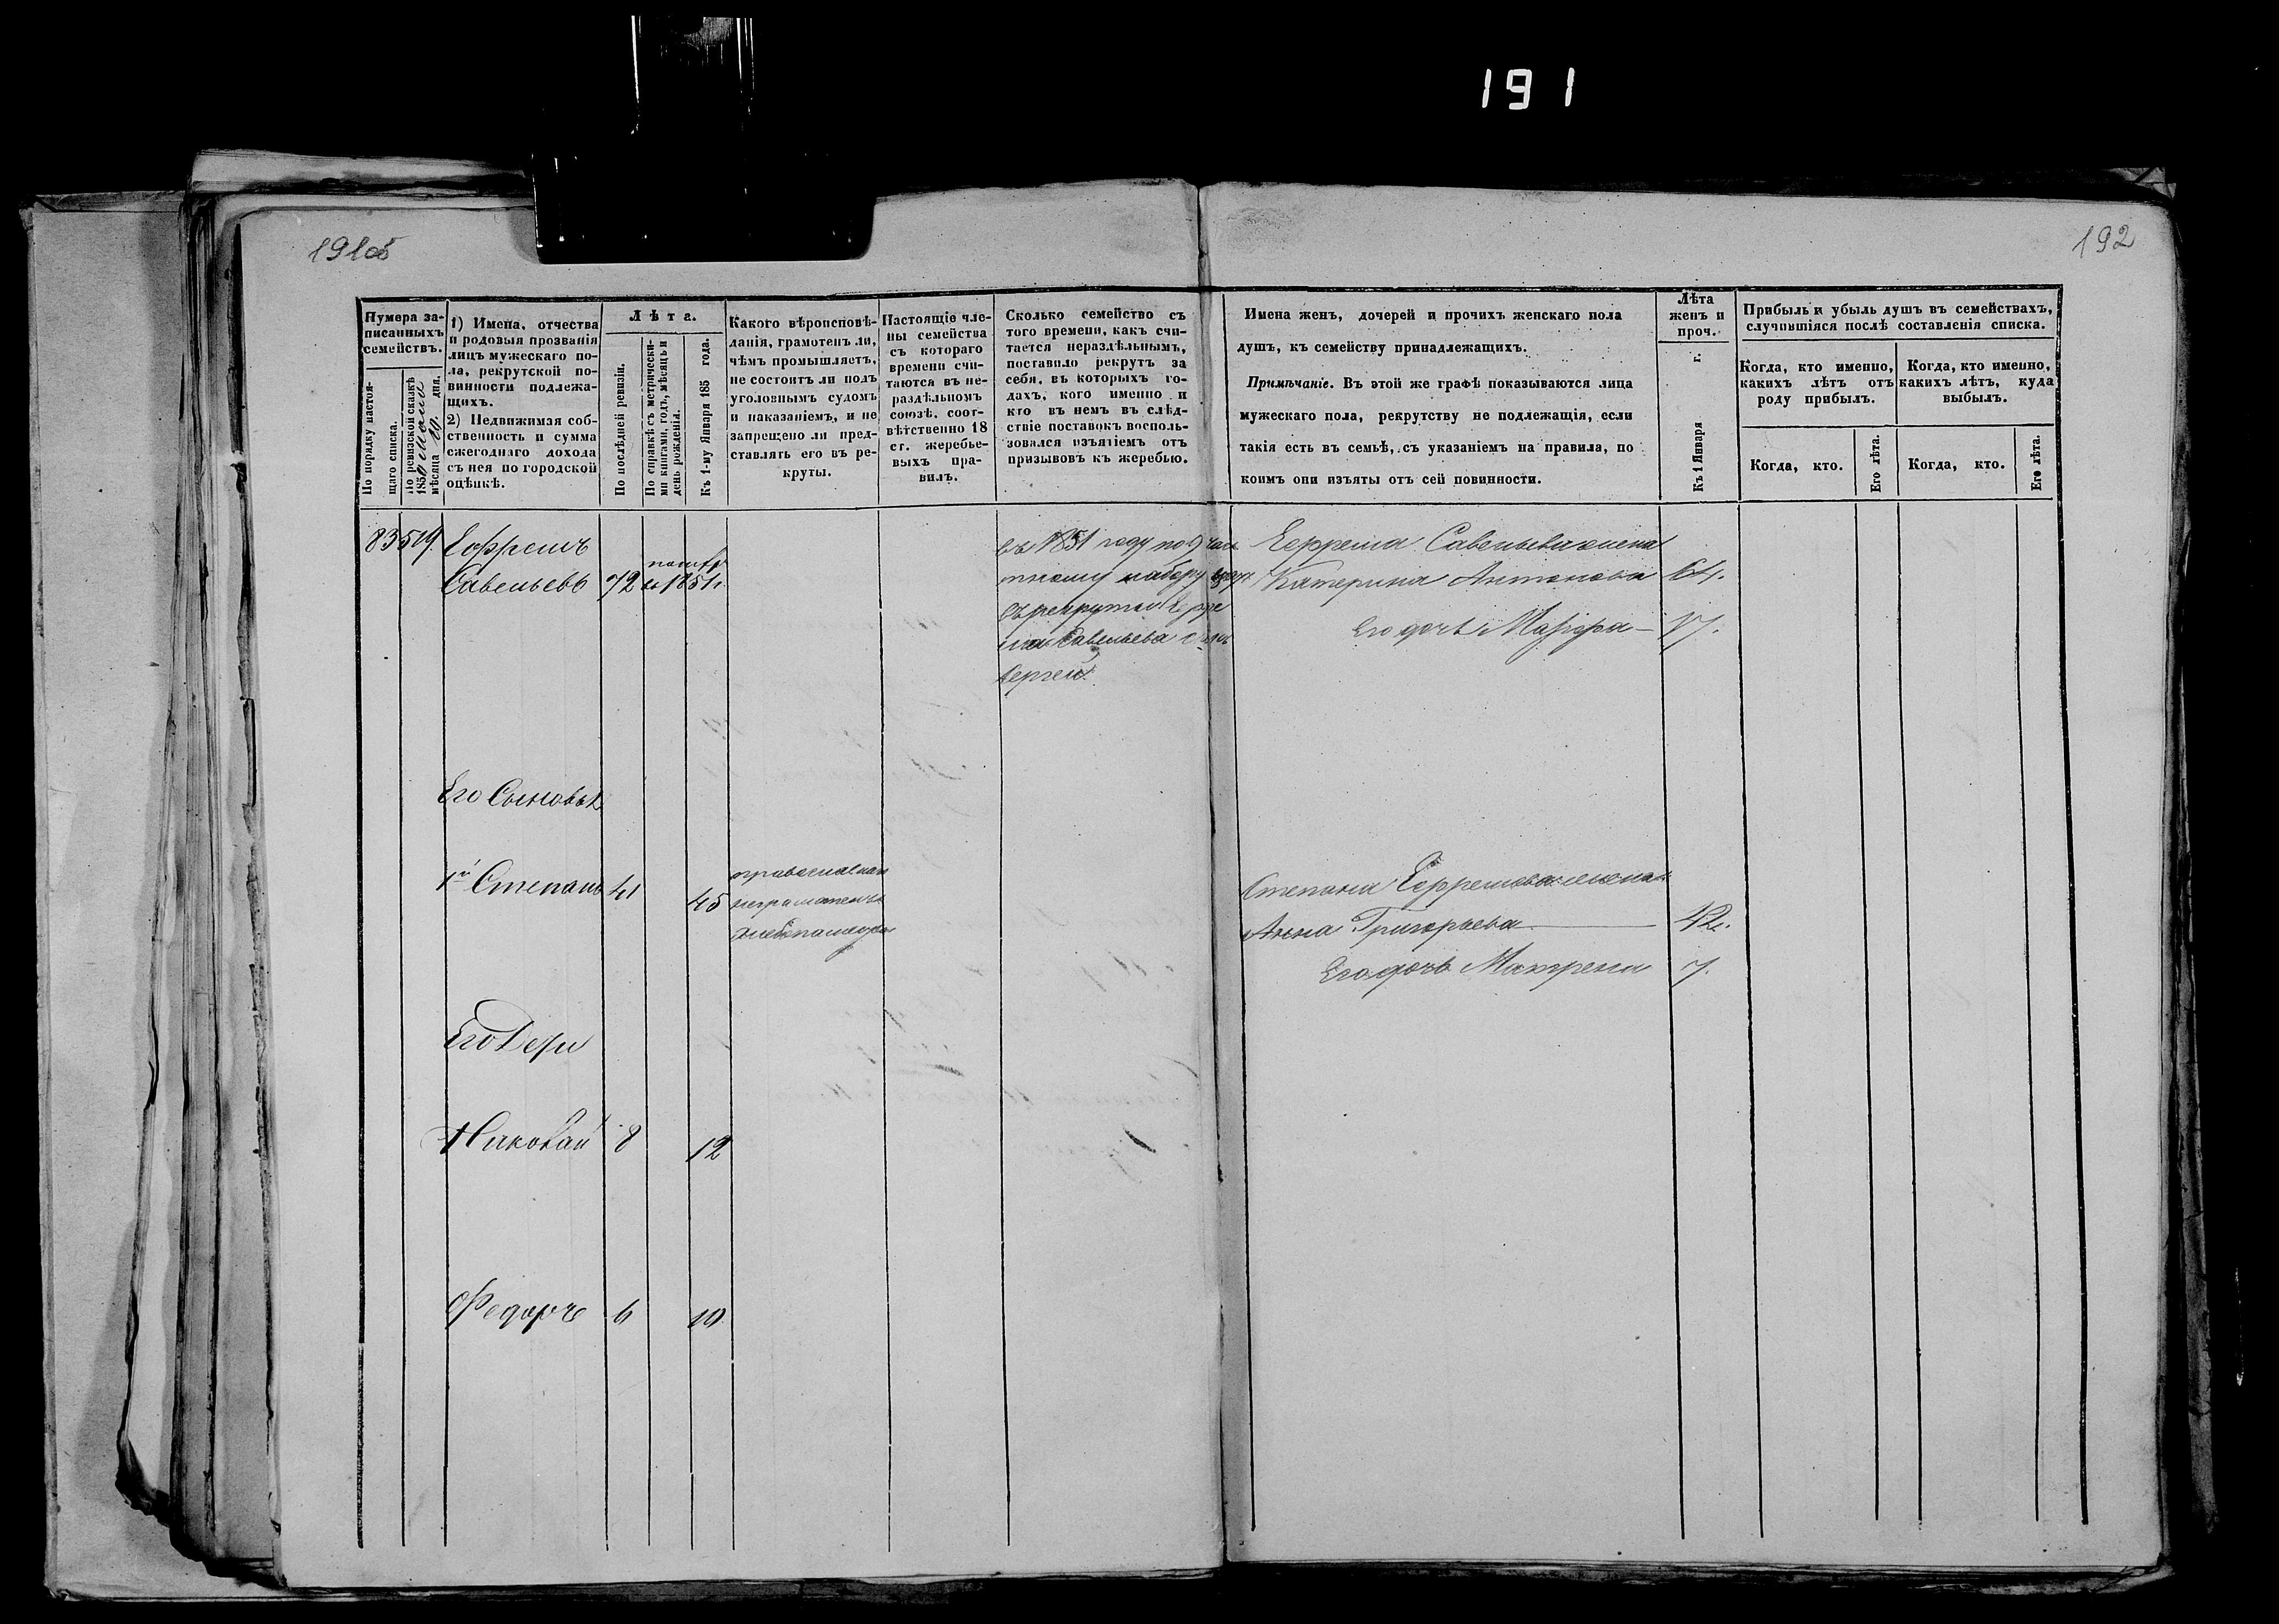 191
191об
192
Нумера за-
писанныхъ
семействъ.
По порядку настоя-
щаго списка.
По ревизской сказкѣ
185 мѣсяца дня.
1) Имена, отчества
и родовыя прозванія
лицъ мужескаго по-
ла, рекрутской по-
винности подлежа-
щихъ.
2) Недвижимая соб-
ственность и сумма
ежегоднаго дохода
съ нея по городской
оцѣнкѣ.
Лѣта.
По послѣдней ревизіи.
По справкѣ съ метрически-
ми книгами, годъ, мѣсяцъ и
день рожденія.
Къ 1-му Января 185 года.
Какого вѣроисповѣ-
данія, грамотенъ ли,
чѣмъ промышляетъ,
не состоитъ ли подъ
уголовнымъ судомъ
и наказаніемъ, и не
запрещено ли пред-
ставлять его въ ре-
круты.
Настоящіе чле-
ны семейства
съ котораго
времени счи-
таются въ не-
раздѣльномъ
союзѣ, соот-
вѣтственно 18
ст. жеребье-
выхъ пра-
вилъ.
Сколько семейство съ
того времени, какъ счи-
тается нераздѣльнымъ,
поставило рекрутъ за
себя, въ которыхъ го-
дахъ, кого именно и
кто въ немъ въ слѣд-
ствіе поставокъ восполь-
зовался изъятіемъ отъ
призывовъ къ жеребью.
Имена женъ, дочерей и прочихъ женскаго пола
душъ, къ семейству принадлежащихъ.
Примѣчаніе. Въ этой же графѣ показываются лица
мужескаго пола, рекрутству не подлежащія, если
такія есть въ семьѣ, съ указаніемъ на правила, по
коимъ они изъяты отъ сей повинности.
Лѣта
женъ и
проч.
Къ 1 Января г.
Прибыль и убыль душъ въ семействахъ,
случившіяся послѣ составленія списка.
Когда, кто именно,
какихъ лѣтъ отъ
роду прибылъ.
Когда, кто именно,
какихъ лѣтъ, куда
выбылъ.
Когда, кто.
Его лѣта.
Когда, кто.
Его лѣта.
83 519. Ефремъ
Савельевъ 72 въ 1851
въ 1851 году по 9 част
тному набору
въ рекруты Ефре
ма Савельева сынъ
Сергей.
Ефрема Савельева жена
Катерина Антонова 64.
Его дочь Марфа 17.
Его Сыновья
1й Степанъ 41 45
православнаго
неграмотенъ
хлебопашецъ
Степана Ефремова жена
Анна Григорьева 42.
Его дочь Матрена 7.
Его Дети
Николай 8 12
Федоръ 6 10